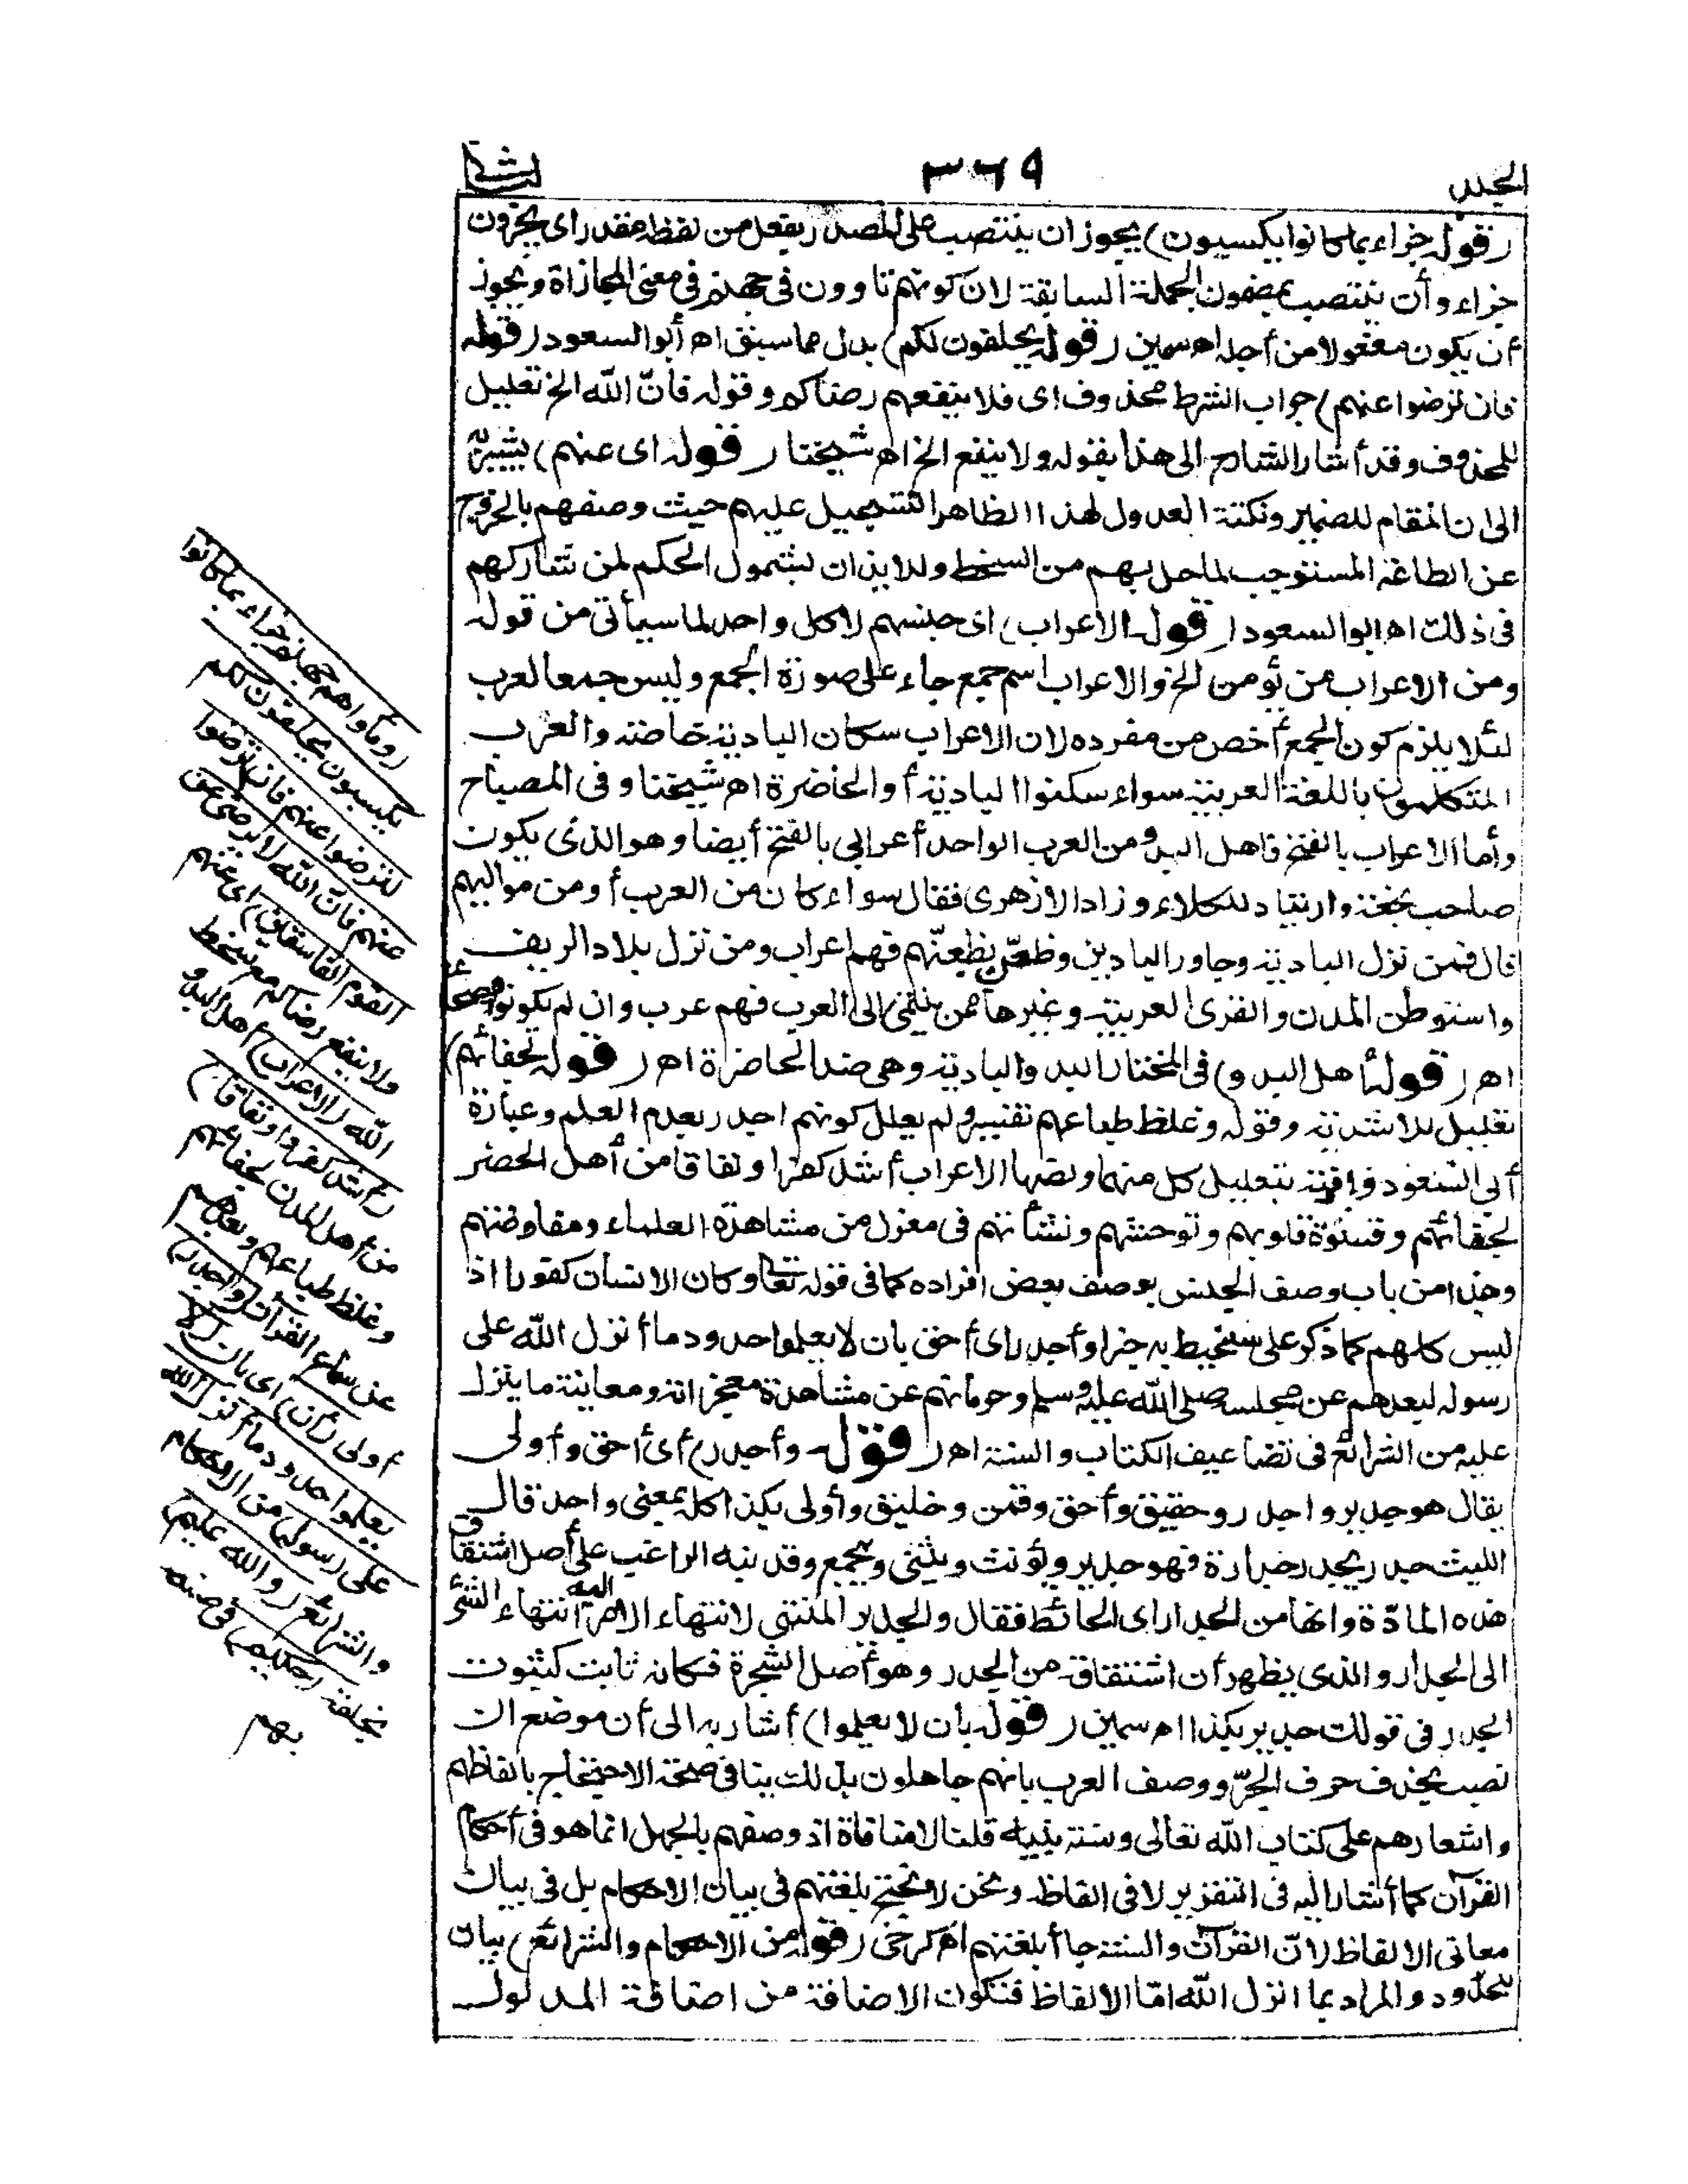 الجلد ٣٦٩ الثانى
(قوله جزاء بما كانوا يكسبون) يجوز ان ينتصب على المصدر بفعل من لفظه مقدر اى يجزون
جزاء وأن ينتصب بمضمون الجملة السابقة لان كونهم تاوون فى جهنم فى معنى المجازاة ويجوز
أن يكون مفعولا من أجله اه سمين (قوله يحلفون لكم) بدل مما سبق اه أبو السعود (قوله
فان ترضوا عنهم) جواب الشرط محذوف اى فلا ينفعهم رضاكم وقوله فانّ الله الخ تعليل
للمحذوف وقد أشار الشارح الى هذا بقوله ولا ينفع الخ اه شيخنا (قوله اى عنهم) يشير به
الى ان المقام للضمير ونكتة العدول لهذا الظاهر التسجيل عليهم حيث وصفهم بالخروج
عن الطاعة المستوجب لما حل بهم من السخط وللايذان لشمول الحكم لمن شاركهم
فى ذلك اه ابو السعود (قوله الاعراب) اى جنسهم لا كل واحد لما سيأتى من قوله
ومن الاعراب من يؤمن الخ والاعراب اسم جمع جاء على صورة الجمع وليس جمعا لعرب
لئلا يلزم كون الجمع أخص من مفرده لان الاعراب سكان البادية خاصة والعرب
المتكلمون باللغة العربية سواء سكنوا البادية أو الحاضرة اه شيخنا وفى المصباح
وأما الاعراب بالفتح فاهل البدو من العرب الواحد أعرابى بالفتح أيضا وهو الذى يكون
صاحب نجعة وارتياد للكلاء وزاد الازهرى فقال سواء كان من العرب أو من مواليهم
قال فمن نزل البادية وجاور البادين وظعن بظعنهم فهم اعراب ومن نزل بلاد الريف
واستوطن المدن والقرى العربية وغيرها ممن ينتمى الى العرب فهم عرب وان لم يكونوا فصحاء
اه (قوله أهل البدو) فى المختار البدو البادية وهى ضد الحاضرة اه (قوله لجفائهم)
تعليل للاشدية وقوله وغلظ طباعهم تفسير ولم يعلل كونهم اجدر بعدم العلم وعبارة
أبى السعود وافية بتعليل كل منهما ونصها الاعراب أشد كفرا ونفاقا من أهل الحضر
لجفائهم وقسوة قلوبهم وتوحشهم ونشأتهم فى معزل من مشاهدة العلماء ومفاوضتهم
وهذا من باب وصف الجنس بوصف بعض افراده كما فى قوله تعالى وكان الانسان كفورا اذ
ليس كلهم كما ذكر على ستحيط به خبرا وأجدر اى أحق بان لا يعلموا حدود ما أنزل الله على
رسوله لبعدهم عن مجلسه صلى الله عليه وسلم وحرمانهم عن مشاهدة معجزاته ومعاينة ما ينزل
عليه من الشرائع فى تضاعيف الكتاب والسنة اه (قوله وأجدر) أى أحق وأولى
يقال هو جدير وأجدر وحقيق وأحق وقمن وخليق وأولى بكذا كل بمعنى واحد قال
الليث جدر يجدر جدارة فهو جدير ويؤنث ويثنى ويجمع وقد نبه الراغب على أصل اشتقاق
هذه المادّة وانها من الجدار اى الحائط فقال والجدير المنتهى لانتهاء الامر اليه انتهاء الشئ
الى الجدار والذى يظهر أن اشتقاقه من الجدر وهو أصل الشجرة فكانه ثابت كثبوت
الجدر فى قولك جدير بكذا اه سمين (قوله بان لا يعلموا) أشار به الى أن موضع ان
نصب بحذف حرف الجرّ ووصف العرب بانهم جاهلون بذلك ينافى صحة الاحتجاج بالفاظهم
واشعارهم على كتاب الله تعالى وسنة نبيه قلنا لا منافاة اذ وصفهم بالجهل انما هو فى أحكام
القرآن كما أشار اليه فى التقرير لا فى الفاظه ونحن لا نحتج بلغتهم فى بيان الاحكام بل فى بيان
معانى الالفاظ لانّ القرآن والسنة جاآ بلغتهم اه كرخى (قوله من الاحكام والشرائع) بيان
للحدود والمراد بما انزل الله امّا الالفاظ فتكون الاضافة من اضافة المدلول
(ومأواهم جهنم جزاء بما كانوا
يكسبون يحلفون لكم
لترضوا عنهم فان ترضوا
عنهم فانّ الله لا يرضى عن
القوم الفاسقين) اى عنهم
ولا ينفع رضاكم مع سخط
الله (الاعراب) أهل البدو
(أشد كفرا ونفاقا)
من أهل المدن لجفائهم
وغلظ طباعهم وبعدهم
عن سماع القرآن (وأجدر)
أولى (أن) اى بان (لا
يعلموا حدود ما أنزل الله
على رسوله) من الاحكام
والشرائع (والله عليم)
بخلقه (حكيم) فى صنعه
بهم